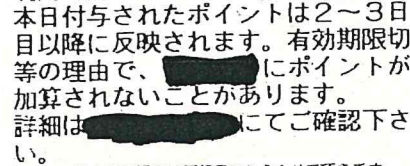 本日付与されたポイントは２～３日
目以降に反映されます。有効期限切
等の理由で、 にポイントが
加算されないことがあります。
詳細は にてご確認下さ
い。